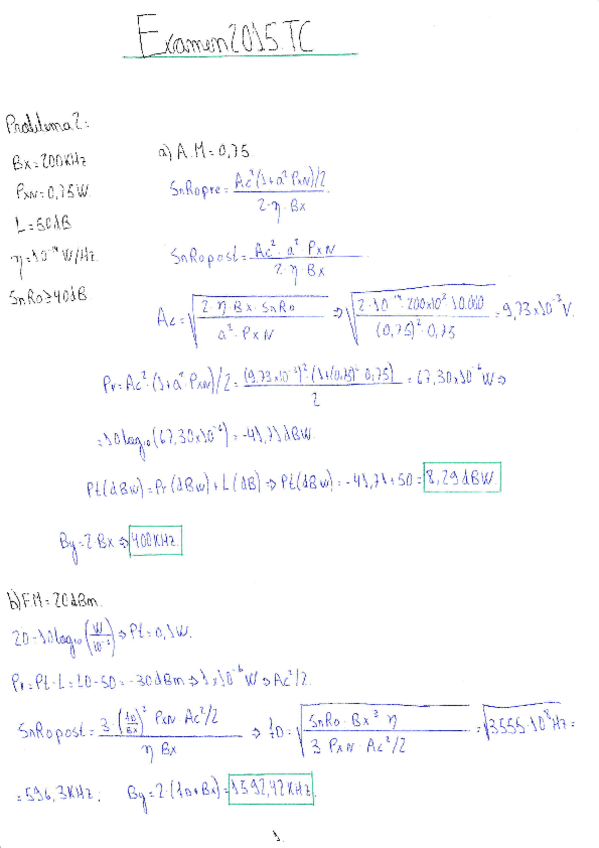 Examen 2015.TC
Problema 2:
Bx=200KHz
PxN=0,75W.
L=50dB
η=10⁻¹⁴ W/Hz.
SnRo≥40dB
a) A.M=0,75.
SnRopre= Ac²(1+a² PxN)/2 / 2·η·Bx
SnRopost= Ac²·a² PxN / 2·η Bx
Ac= √(2·η Bx·SnRo / a²·PxN) ⇒ √(2·10⁻¹⁴·200x10³·10.000 / (0,75)²·0,75) = 9,73x10⁻³V.
Pr=Ac²·(1+a² PxN)/2= (9,73x10⁻³)²·(1+(0,75)²·0,75) / 2 = 67,30x10⁻⁶W⇒
=10log₁₀(67,30x10⁻⁶)=-41,71dBW.
Pt(dBw)=Pr(dBw)+L(dB)⇒Pt(dBw)=-41,71+50=8,29dBW
By=2·Bx⇒400KHz.
b)FM=20dBm.
20=10log₁₀(W/10⁻³)⇒Pt=0,1W.
Pr=Pt-L=20-50=-30dBm⇒1x10⁻⁶W⇒Ac²/2.
SnRopost= 3·(fD/Bx)² PxN·Ac²/2 / η Bx ⇒ fD=√(SnRo·Bx³ η / 3 PxN·Ac²/2) =√3555·10⁸Hz=
=596,3KHz; By=2·(fD+Bx)=1592,42KHz.
1.